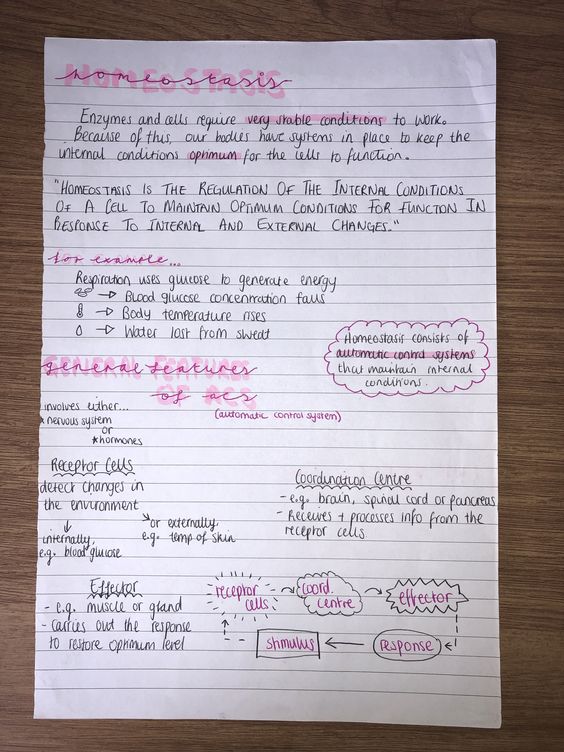 homeostasis
HOMEOSTASIS
Enzymes and cells require very stable conditions to work.
Because of this, our bodies have systems in place to keep the
internal conditions optimum for the cells to function.
"HOMEOSTASIS IS THE REGULATION OF THE INTERNAL CONDITIONS
OF A CELL TO MAINTAIN OPTIMUM CONDITIONS FOR FUNCTION IN
RESPONSE TO INTERNAL AND EXTERNAL CHANGES."
for example...
Respiration uses glucose to generate energy
→ Blood glucose concentration falls
→ Body temperature rises
→ Water lost from sweat
Homeostasis consists of
automatic control systems
that maintain internal
conditions.
general features
GENERAL FEATURES
of acs
OF ACS
(automatic control system)
involves either...
*nervous system
or
*hormones
Receptor Cells
detect changes in
the environment
internally,
e.g. blood glucose
or externally,
e.g. temp of skin
Coordination Centre
- e.g. brain, spinal cord or pancreas
- Receives + processes info from the
receptor cells
Effector
- e.g. muscle or gland
- carries out the response
to restore optimum level
receptor
cells
coord.
centre
effector
response
stimulus